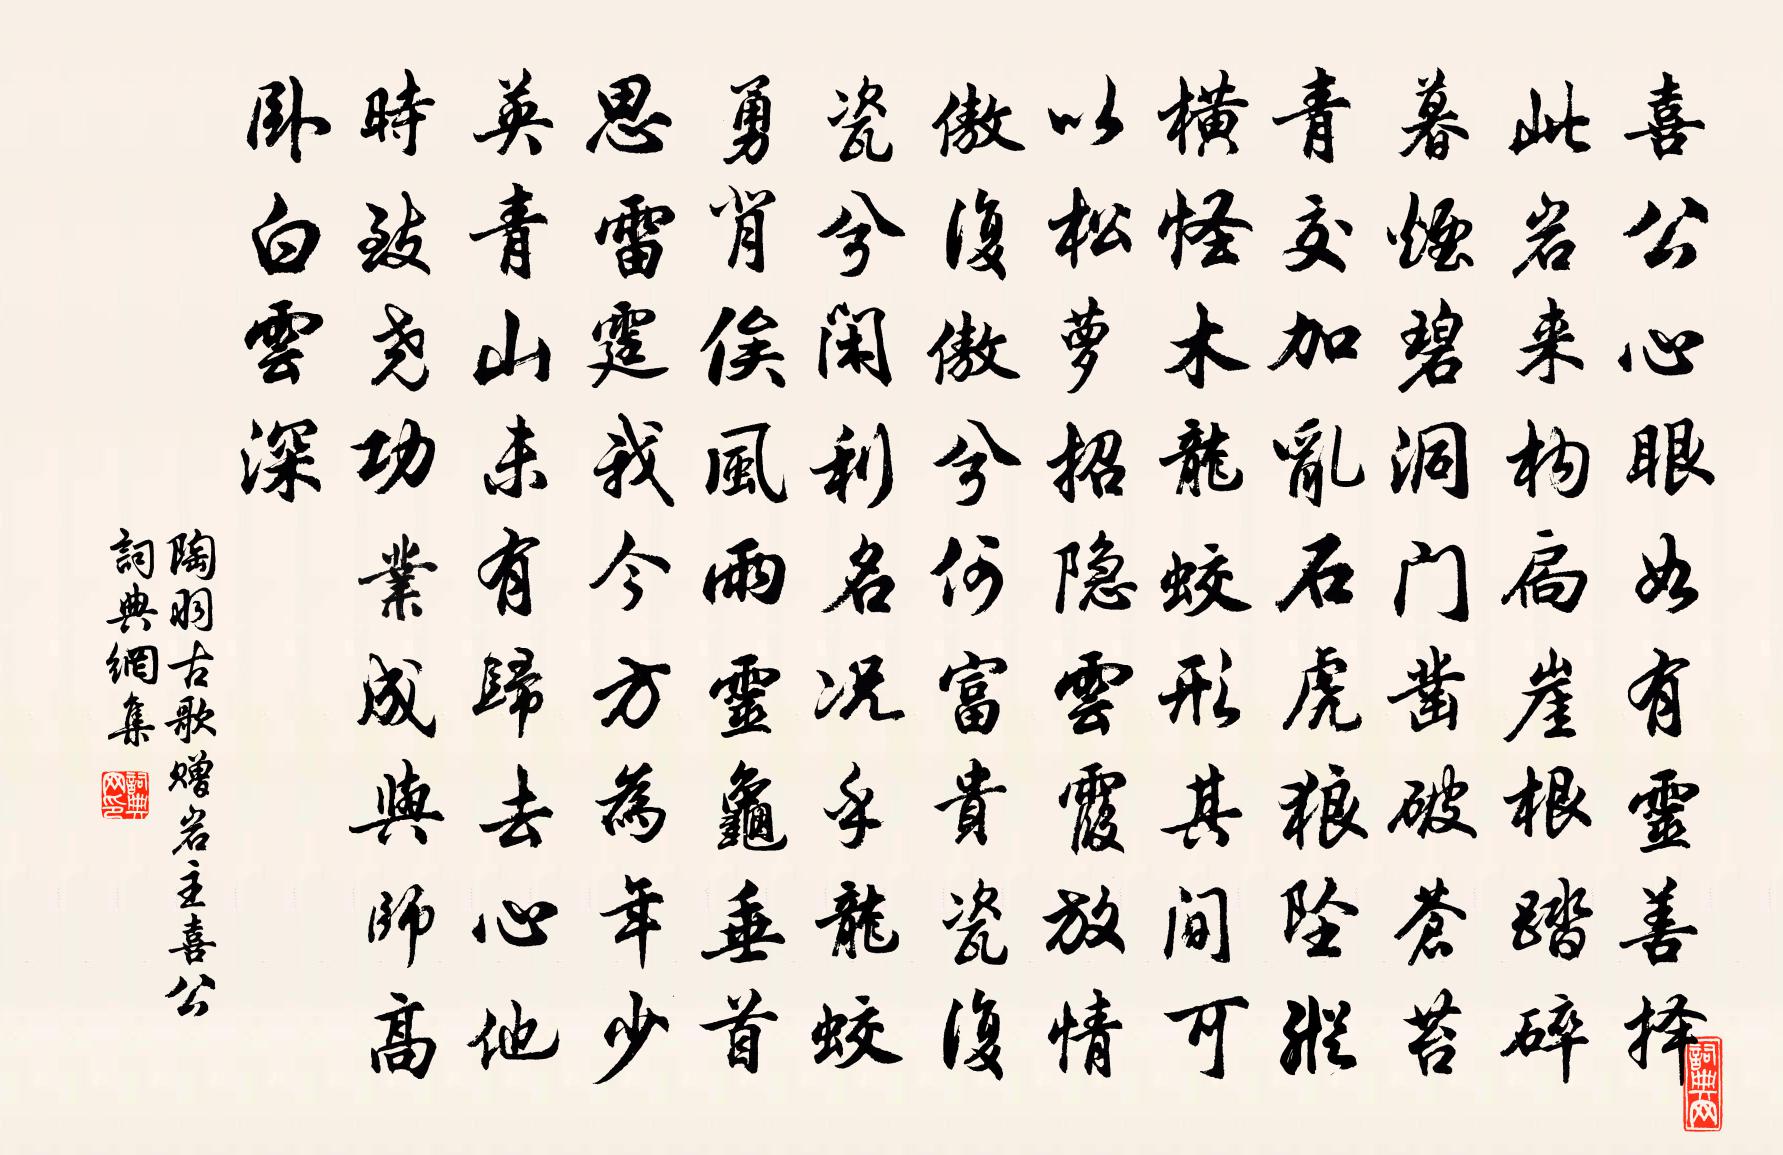 喜公心眼如有靈善择
此岩来构扃崖根踏碎
暮煙碧洞门凿破蒼苔
青交加亂石虎狼坠縱
橫怪木龍蛟形其间可
以松萝招隐雲霞放情
傲復傲兮何富貴瓷復
瓷兮闲利名况乎龍蛟
勇背俟風雨靈龜垂首
思雷霆我今方為年少
英青山未有歸去心他
時致尧功業成與師高
臥白雲深
陶羽古歌赠岩主喜公
詞典網集
詞典网印
詞典网